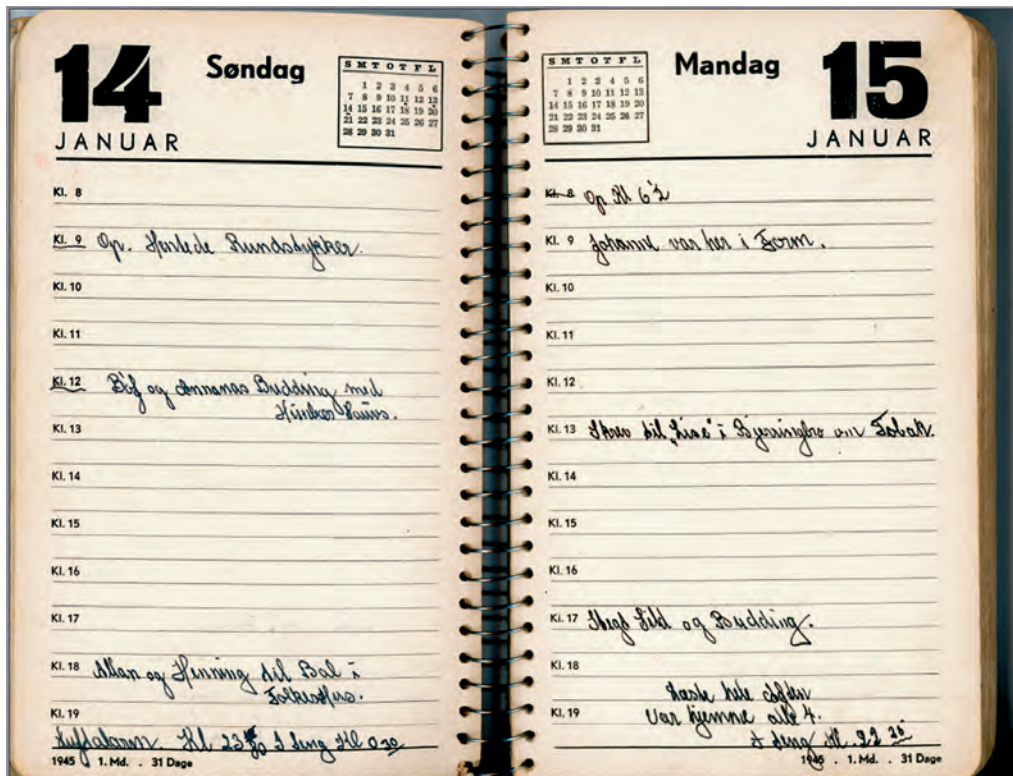 14
Søndag
JANUAR
S M T O T F L
1 2 3 4 5 6
7 8 9 10 11 12 13
14 15 16 17 18 19 20
21 22 23 24 25 26 27
28 29 30 31
Kl. 8
Kl. 9 Op. Hentede Rundstykker.
Kl. 10
Kl. 11
Kl. 12 Bøf og Annanas Budding med
Hinbær Sauvs.
Kl. 13
Kl. 14
Kl. 15
Kl. 16
Kl. 17
Kl. 18 Allan og Henning til Bal i
Folkets Hus.
Kl. 19
Luftalarm. Kl 23 I Seng Kl 0 30
1945 . 1. Md. . 31 Dage
Mandag
15
JANUAR
S M T O T F L
1 2 3 4 5 6
7 8 9 10 11 12 13
14 15 16 17 18 19 20
21 22 23 24 25 26 27
28 29 30 31
Kl. 8 Op Kl 6 1/2
Kl. 9 Johanne var her i Form.
Kl. 10
Kl. 11
Kl. 12
Kl. 13 Skrev til "Lise" i Bjerringbro om Tobak.
Kl. 14
Kl. 15
Kl. 16
Kl. 17 Stegt Sild og Budding.
Kl. 18
Læste hele Aften
Kl. 19 Var hjemme alle 4.
I Seng Kl. 22
1945 . 1. Md. . 31 Dage